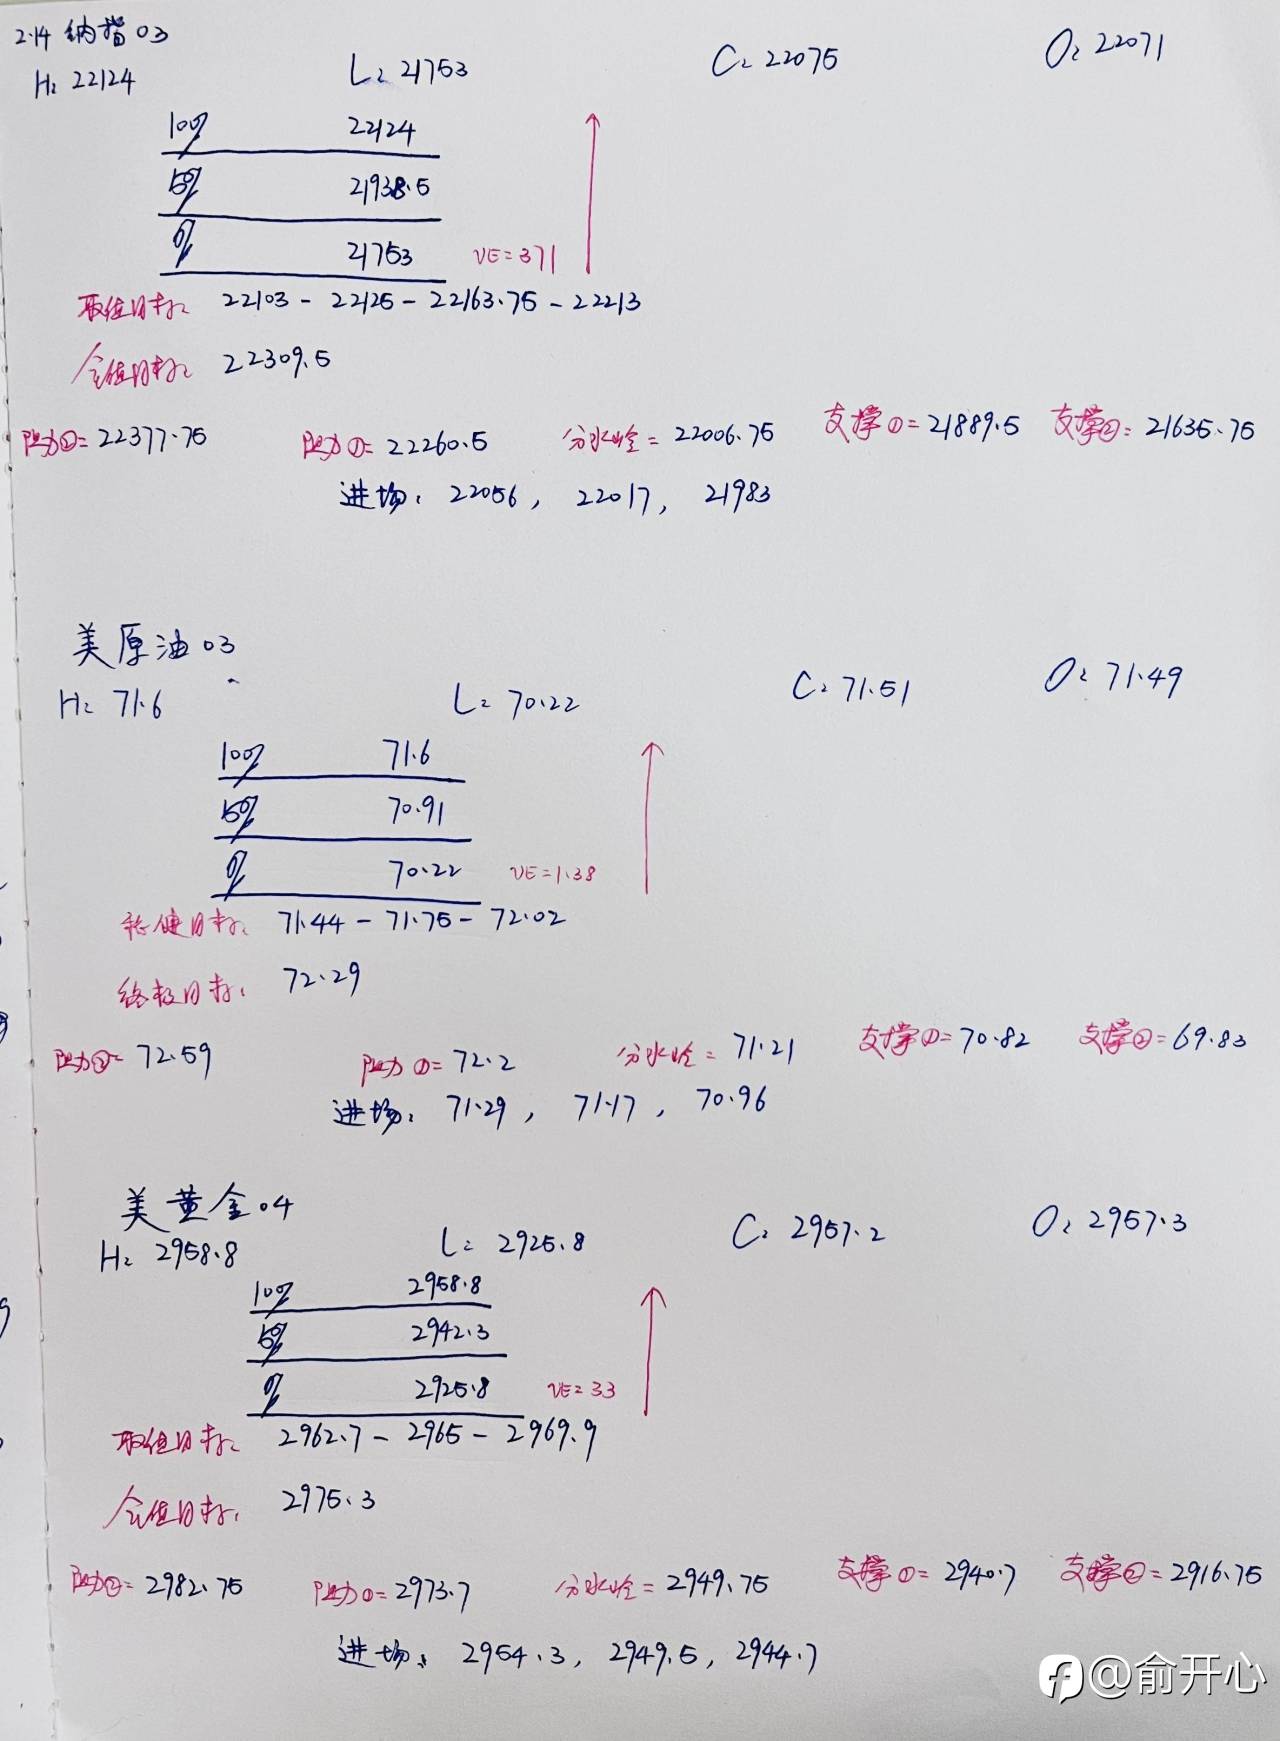 2.14 纳指03
H: 22124 L: 21753 C: 22075 O: 22071
100% 22124
50% 21938.5
0% 21753 VE=371
取值目标: 22103 - 22125 - 22163.75 - 22213
全值目标: 22309.5
阻力②=22377.75 阻力①=22260.5 分水岭=22006.75 支撑①=21889.5 支撑②:21635.75
进场: 22056, 22017, 21983
美原油03
H: 71.6 L: 70.22 C: 71.51 O: 71.49
100% 71.6
50% 70.91
0% 70.22 VE=1.38
稳健目标: 71.44 - 71.75 - 72.02
终极目标: 72.29
阻力②=72.59 阻力①=72.2 分水岭=71.21 支撑①=70.82 支撑②=69.83
进场: 71.29, 71.17, 70.96
美黄金04
H: 2958.8 L: 2925.8 C: 2957.2 O: 2957.3
100% 2958.8
50% 2942.3
0% 2925.8 VE=33
取值目标: 2962.7 - 2965 - 2969.9
全值目标: 2975.3
阻力②=2982.75 阻力①=2973.7 分水岭=2949.75 支撑①=2940.7 支撑②=2916.75
进场: 2954.3, 2949.5, 2944.7
@俞开心